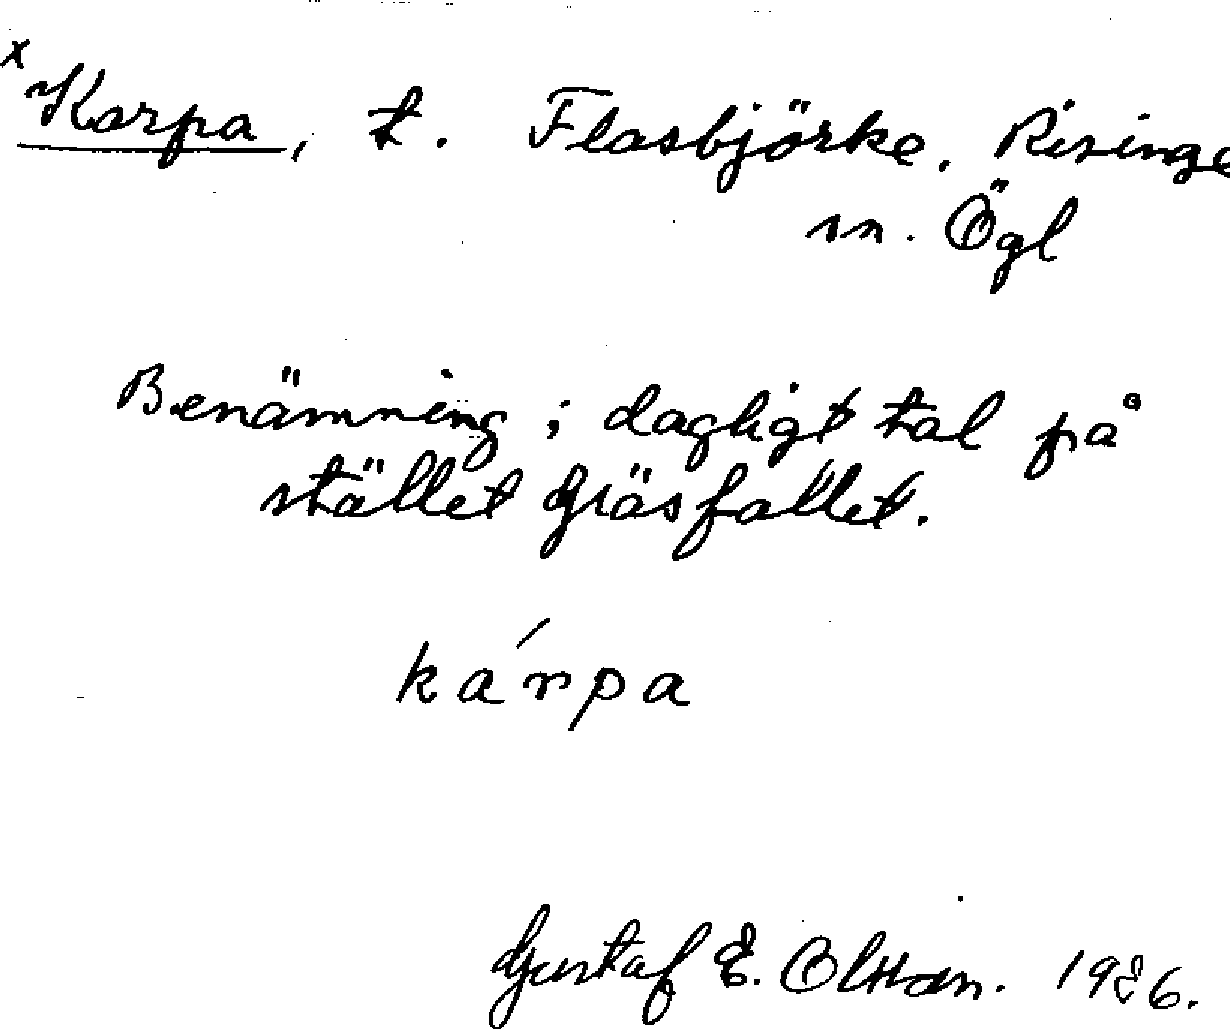 x Karpa, t. Flasbjörke. Risinge
sn. Ögl
Benämning i dagligt tal på
stället Gräsfallet.
kárpa
Gustaf E. Olsson. 1926.